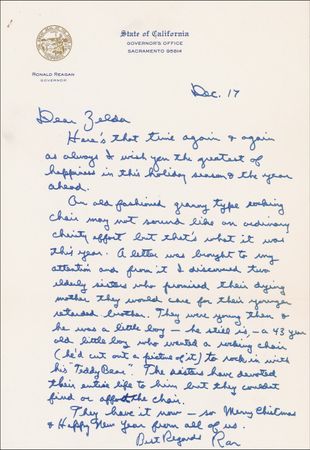 State of California
GOVERNOR'S OFFICE
SACRAMENTO 95814
RONALD REAGAN
GOVERNOR
Dec. 17
Dear Zelda
Here's that time again & again
as always I wish you the greatest of
happiness in this holiday season & the year
ahead.
An old fashioned granny type rocking
chair may not sound like an ordinary
charity effort but that's what it was
this year. A letter was brought to my
attention and from it I discovered two
elderly sisters who promised their dying
mother they would care for their younger
retarded brother. They were young then &
he was a little boy — he still is, — a 43 year
old little boy who wanted a rocking chair
(he'd cut out a picture of it) to rock in with
his "Teddy Bear". The sisters have devoted
their entire life to him but they couldn't
find or afford the chair.
They have it now — so Merry Christmas
& Happy New Year from all of us.
Best Regards Ron